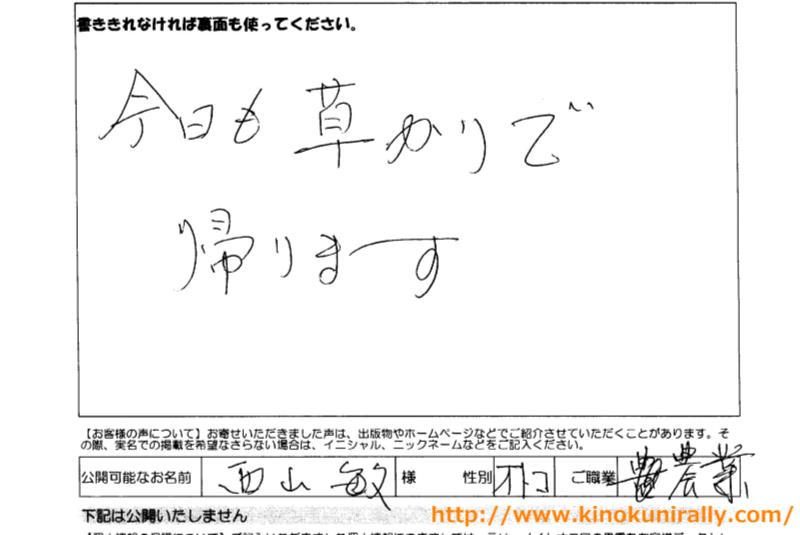 書ききれなければ裏面も使ってください。
今日も草かりで
帰ります
【お客様の声について】お寄せいただきました声は、出版物やホームページなどでご紹介させていただくことがあります。そ
の際、実名での掲載を希望なさらない場合は、イニシャル、ニックネームなどをご記入ください。
公開可能なお名前 西山 敏 様 性別 オトコ ご職業 農業
下記は公開いたしません
http://www.kinokunirally.com/